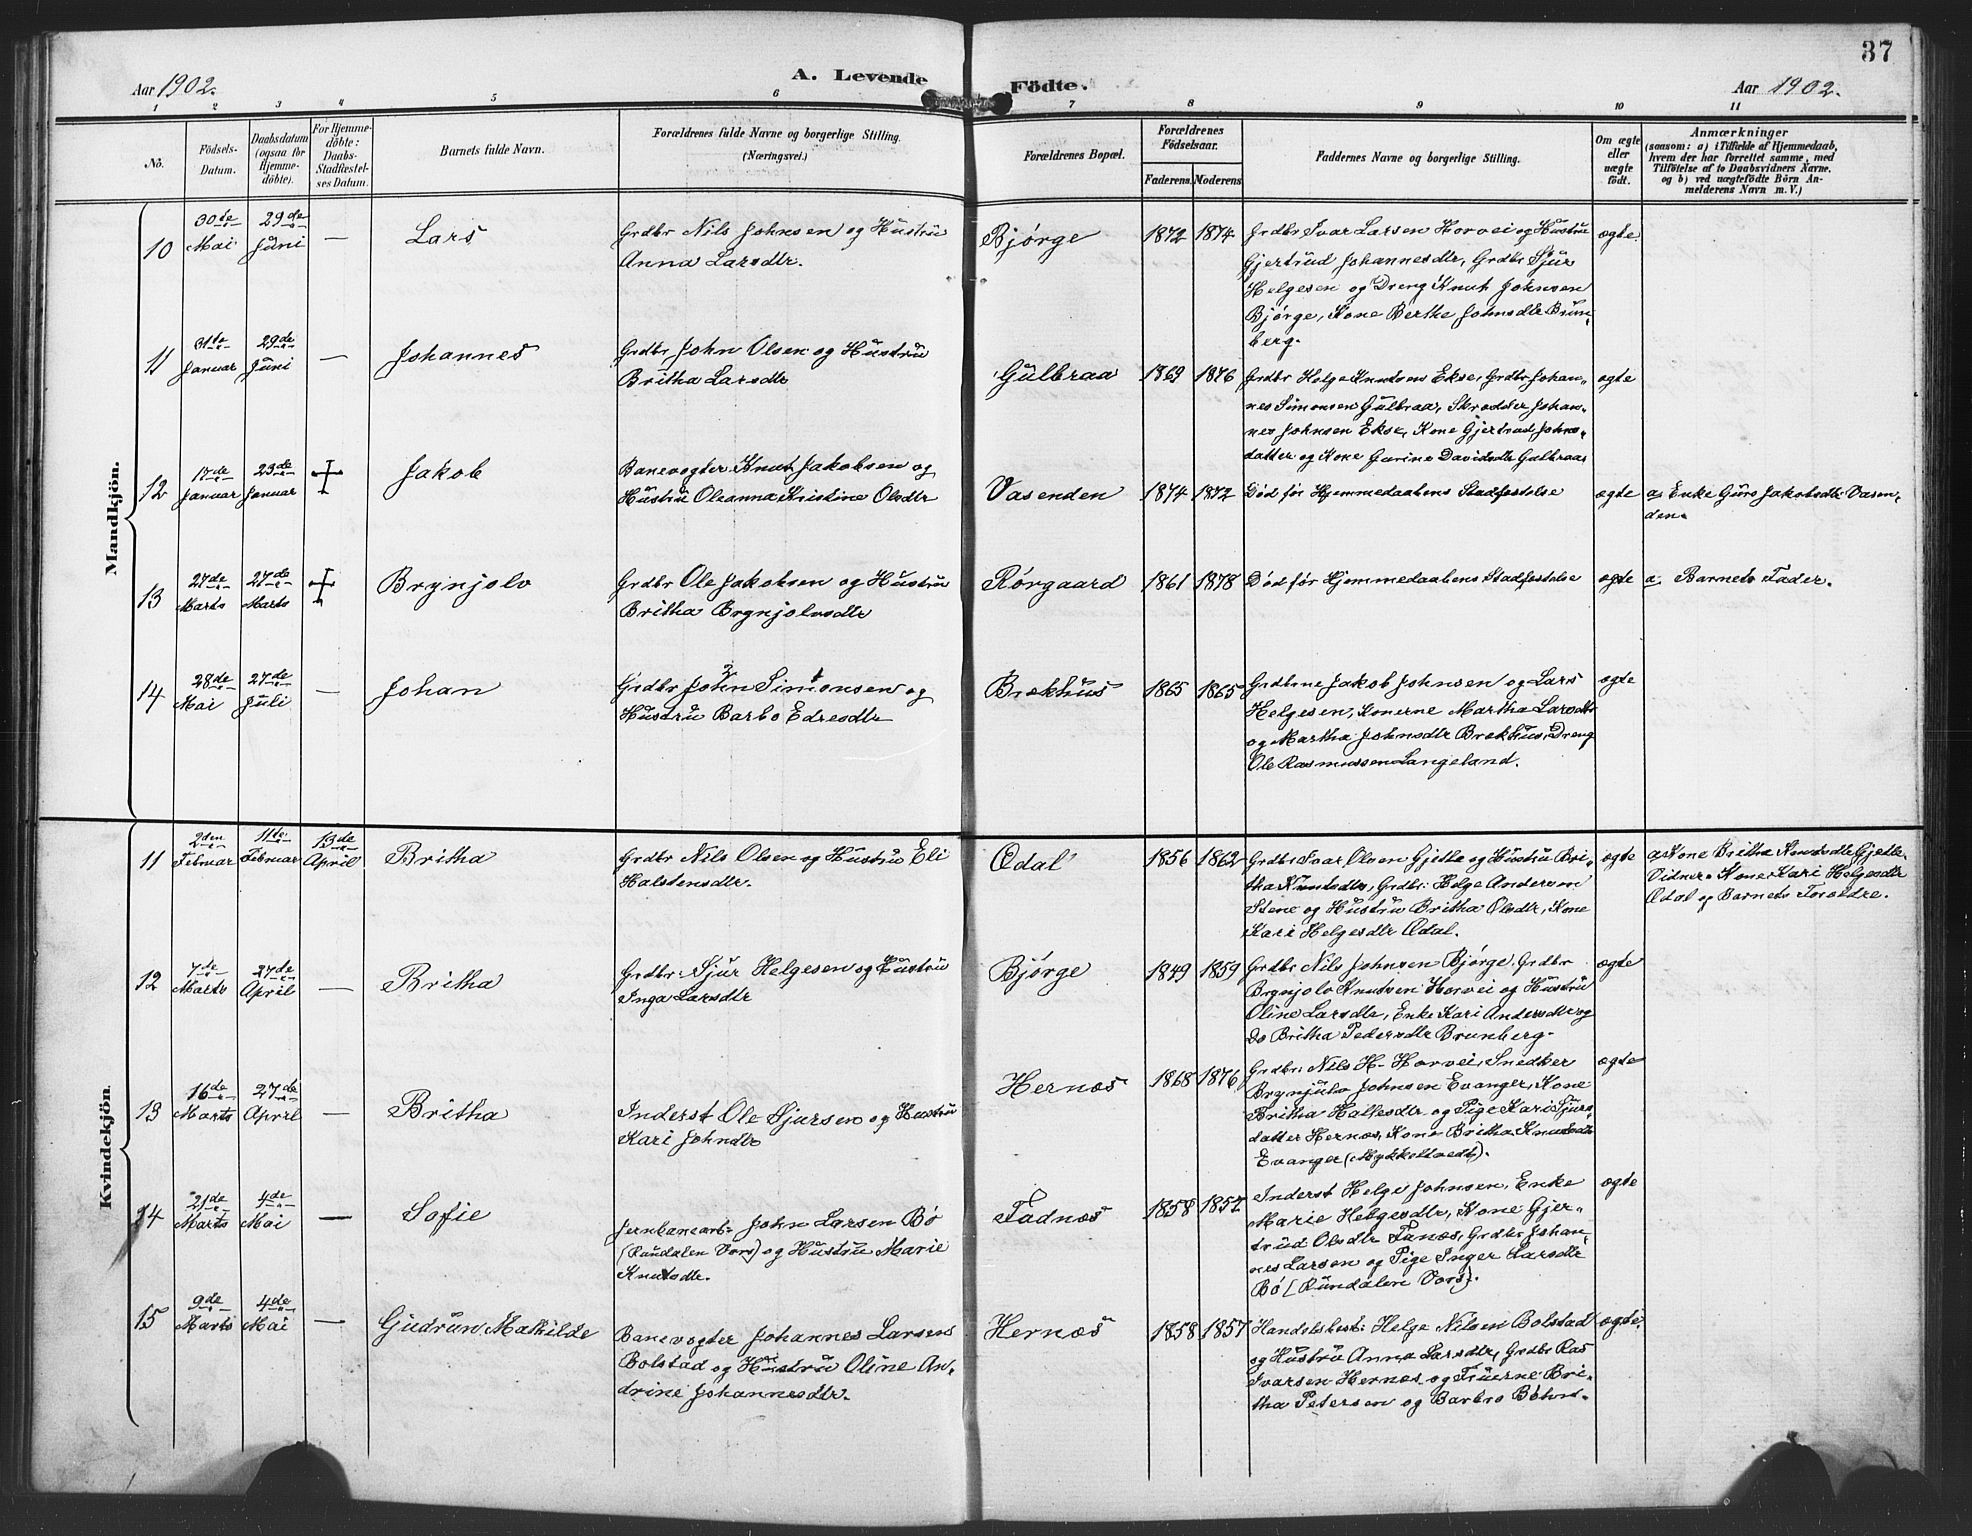 37
Aar 1902.
A. Levende
Födte.
Aar 1902.
1 2 3 4 5 6 7 8 9 10 11
No.
Födsels-
Datum.
Daabsdatum
(ogsaa for
Hjemme-
döbte).
For Hjemme-
döbte:
Daabs-
Stadfæstel-
ses Datum.
Barnets fulde Navn.
Forældrenes fulde Navne og borgerlige Stilling.
(Næringsvei.)
Forældrenes Bopæl.
Forældrenes
Födselsaar.
Faderens. Moderens
Faddernes Navne og borgerlige Stilling.
Om ægte
eller
uægte
födt.
Anmærkninger
(saasom: a) i Tilfælde af Hjemmedaab,
hvem der har forrettet samme, med
Tilföielse af to Daabsvidners Navne.
og b) ved uægtefödte Börn An-
melderens Navn m. V.)
Mandkjön.
10
30te
Mai
29de
Juni
—
Lars
Grdbr Nils Johnsen og Hustru
Anna Larsdtr.
Bjørge
1872
1874
Grdbr Ivar Larsen Horvei og Hustru
Gjertrud Johannesdtr, Grdbr Sjur
Helgesen og Dreng Knut Johnsen
Bjørge, Kone Berthe Johnsdtr Brun-
berg.
ægte
11
31te
Januar
29de
Juni
—
Johannes
Grdbr John Olsen og Hustru
Britha Larsdtr
Gulbraa
1869
1876
Grdbr Helge Knutsen Ekse, Grdbr Johan-
nes Simonsen Gulbraa, Skrædder Johan-
nes Johnsen Ekse, Kone Gjertrud Johns-
datter og Kone Gurine Davidsdtr Gulbraa
ægte
12
17de
Januar
23de
Januar
+
Jakob
Banevogter Knut Jakobsen og
Hustru Oleanna Kristine Olsdtr
Vasenden
1874
1872
Død før Hjemmedaabens Stadfestelse
ægte
a, Enke Guro Jakobsdtr Vasen-
den.
13
27de
Marts
27de
Marts
+
Brynjolv
Grdbr Ole Jakobsen og Hustru
Britha Brynjolvsdtr
Rørgaard
1861
1878
Død før Hjemmedaabens Stadfestelse
ægte
a, Barnets Fader.
14
28de
Mai
27de
Juli
—
Johan
Grdbr John Simonsen og
Hustru Barbo Edresdtr
Brækhus
1865
1865
Grdbrne Jakob Johnsen og Lars
Helgesen, Konerne Martha Larsdtr
og Martha Johnsdtr Brækhus, Dreng
Ole Rasmussen Langeland.
ægte
Kvindekjön.
11
2den
Februar
11te
Februar
13de
April
Britha
Grdbr Nils Olsen og Hustru Eli
Halstensdtr.
Ødal
1856
1862
Grdbr Ivar Olsen Gjelle og Hustru Bri-
tha Knutsdtr, Grdbr Helge Andersen
Stene og Hustru Britha Olsdtr, Kone
Kari Helgesdtr Ødal.
ægte
a, Kone Britha Knutsdtr Gjelle.
Vidner: Kone Kari Helgesdtr
Ødal og Barnets Forældre.
12
7de
Marts
27de
April
—
Britha
Grdbr. Sjur Helgesen og Hustru
Inga Larsdtr
Bjørge
1849
1859
Grdbr Nils Johnsen Bjørge, Grdbr
Brynjolv Knutsen Horvei og Hustru
Oline Larsdtr, Enke Kari Andersdtr og
Do Britha Pedersdtr Brunberg.
ægte
13
16de
Marts
27de
April
—
Britha
Inderst Ole Sjursen og Hustru
Kari Johnsdtr
Hernæs
1868
1876
Grdbr. Nils H. Horvei, Snedker
Brynjulv Johnsen Evanger, Kone
Britha Hallesdtr og Pige Kari Sjurs-
datter Hernæs, Kone Britha Knutsdtr
Evanger (Mykkeltvedt).
ægte
14
21de
Marts
4de
Mai
—
Sofie
Jernbanearb. John Larsen Bø
(Raundalen Vors) og Hustru Marie
Knutsdtr.
Fadnæs
1858
1852
Inderst Helge Johnsen, Enke
Marie Helgesdtr, Kone Gjer-
trud Olsdtr Fanæs, Grdbr Johan-
nes Larsen og Pige Inger Larsdtr
Bø (Rundalen Vors).
ægte
15
9de
Marts
4de
Mai
—
Gudrun Mathilde
Banevogter Johannes Larsen
Bolstad og Hustru Oline An-
drine Johannesdtr.
Hernæs
1858
1857
Handelsbest. Helge Nilsen Bolstad
og Hustru Anna Larsdtr, Grdbr Ras
Ivarsen Hernæs og Fruerne Bri-
tha Petersen og Barbro
ægte